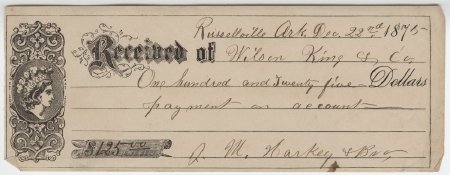 Russellville Ark. Dec. 22nd 1875
Received of Wilson King & Co
One hundred and Twenty five – Dollars
payment on account
$125.00
J. M. Harkey & Bro,